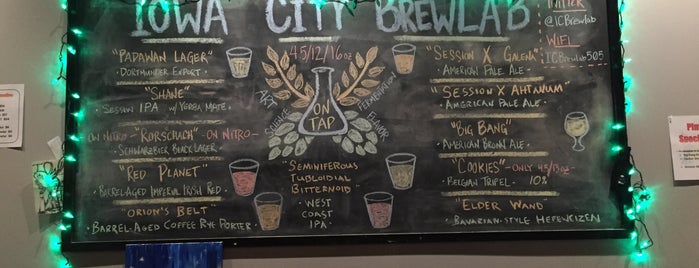 IOWA CITY BREWLAB
TWITTER
@ICBrewlab
WIFI
ICBrewlab505
"PADAWAN LAGER"
· DORTMUNDER EXPORT ·
"SHANE"
· SESSION IPA W/ YERBA MATE ·
ON NITRO - "RORSCHACH" - ON NITRO -
· SCHWARZBIER BLACK LAGER ·
"RED PLANET"
· BARREL-AGED IMPERIAL IRISH RED ·
"ORION'S BELT"
· BARREL-AGED COFFEE RYE PORTER ·
4.5/12/16oz
ART
SCIENCE
FERMENTATION
FLAVOR
ON
TAP
"SEMINIFEROUS
TUBLOIDIAL
BITTERNOID"
· WEST
COAST
IPA ·
"SESSION X GALENA"
· AMERICAN PALE ALE ·
"SESSION X AHTANUM"
· AMERICAN PALE ALE ·
"BIG BANG"
· AMERICAN BROWN ALE ·
"COOKIES" - ONLY 4.5/13oz -
· BELGIAN TRIPEL · 10%
"ELDER WAND"
· BAVARIAN-STYLE HEFEWEIZEN